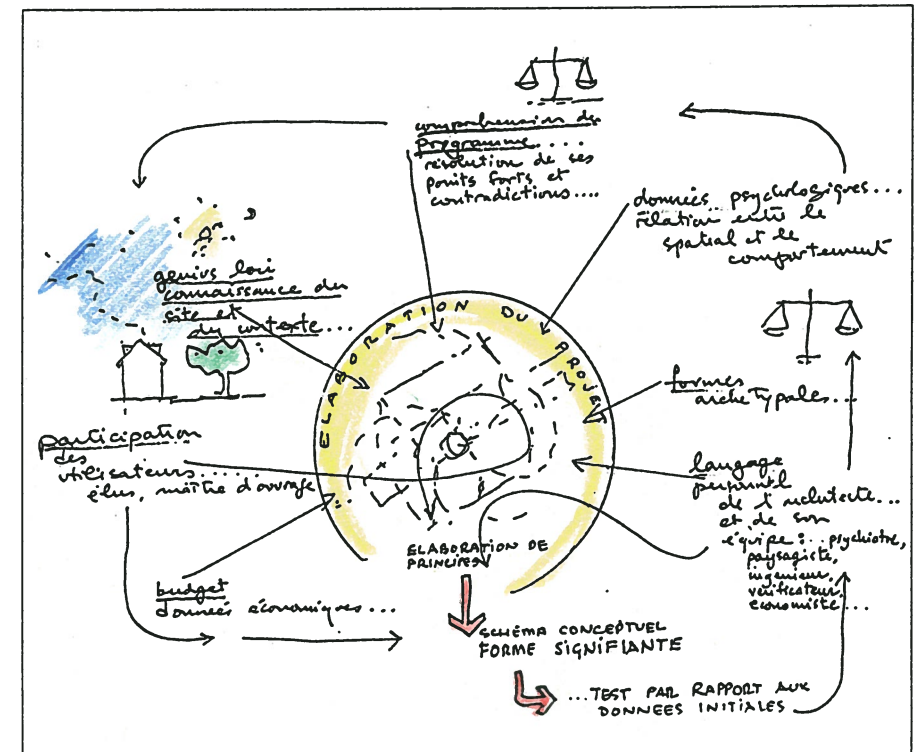 compréhension du
programme....
résolution de ses
points forts et
contradictions....
données psychologiques...
relation entre le
spatial et le
comportement
genius loci
connaissance du
site et
du contexte...
ELABORATION DU PROJET
formes
archétypales...
participation
des
utilisateurs.....
élus, maître d'ouvrage
langage
personnel
de l'architecte...
et de son
équipe:...psychiatre,
paysagiste,
ingénieur,
vérificateur,
économiste...
ELABORATION DE
PRINCIPES
budget
données économiques...
SCHÉMA CONCEPTUEL
FORME SIGNIFIANTE
...TEST PAR RAPPORT AUX
DONNEES INITIALES